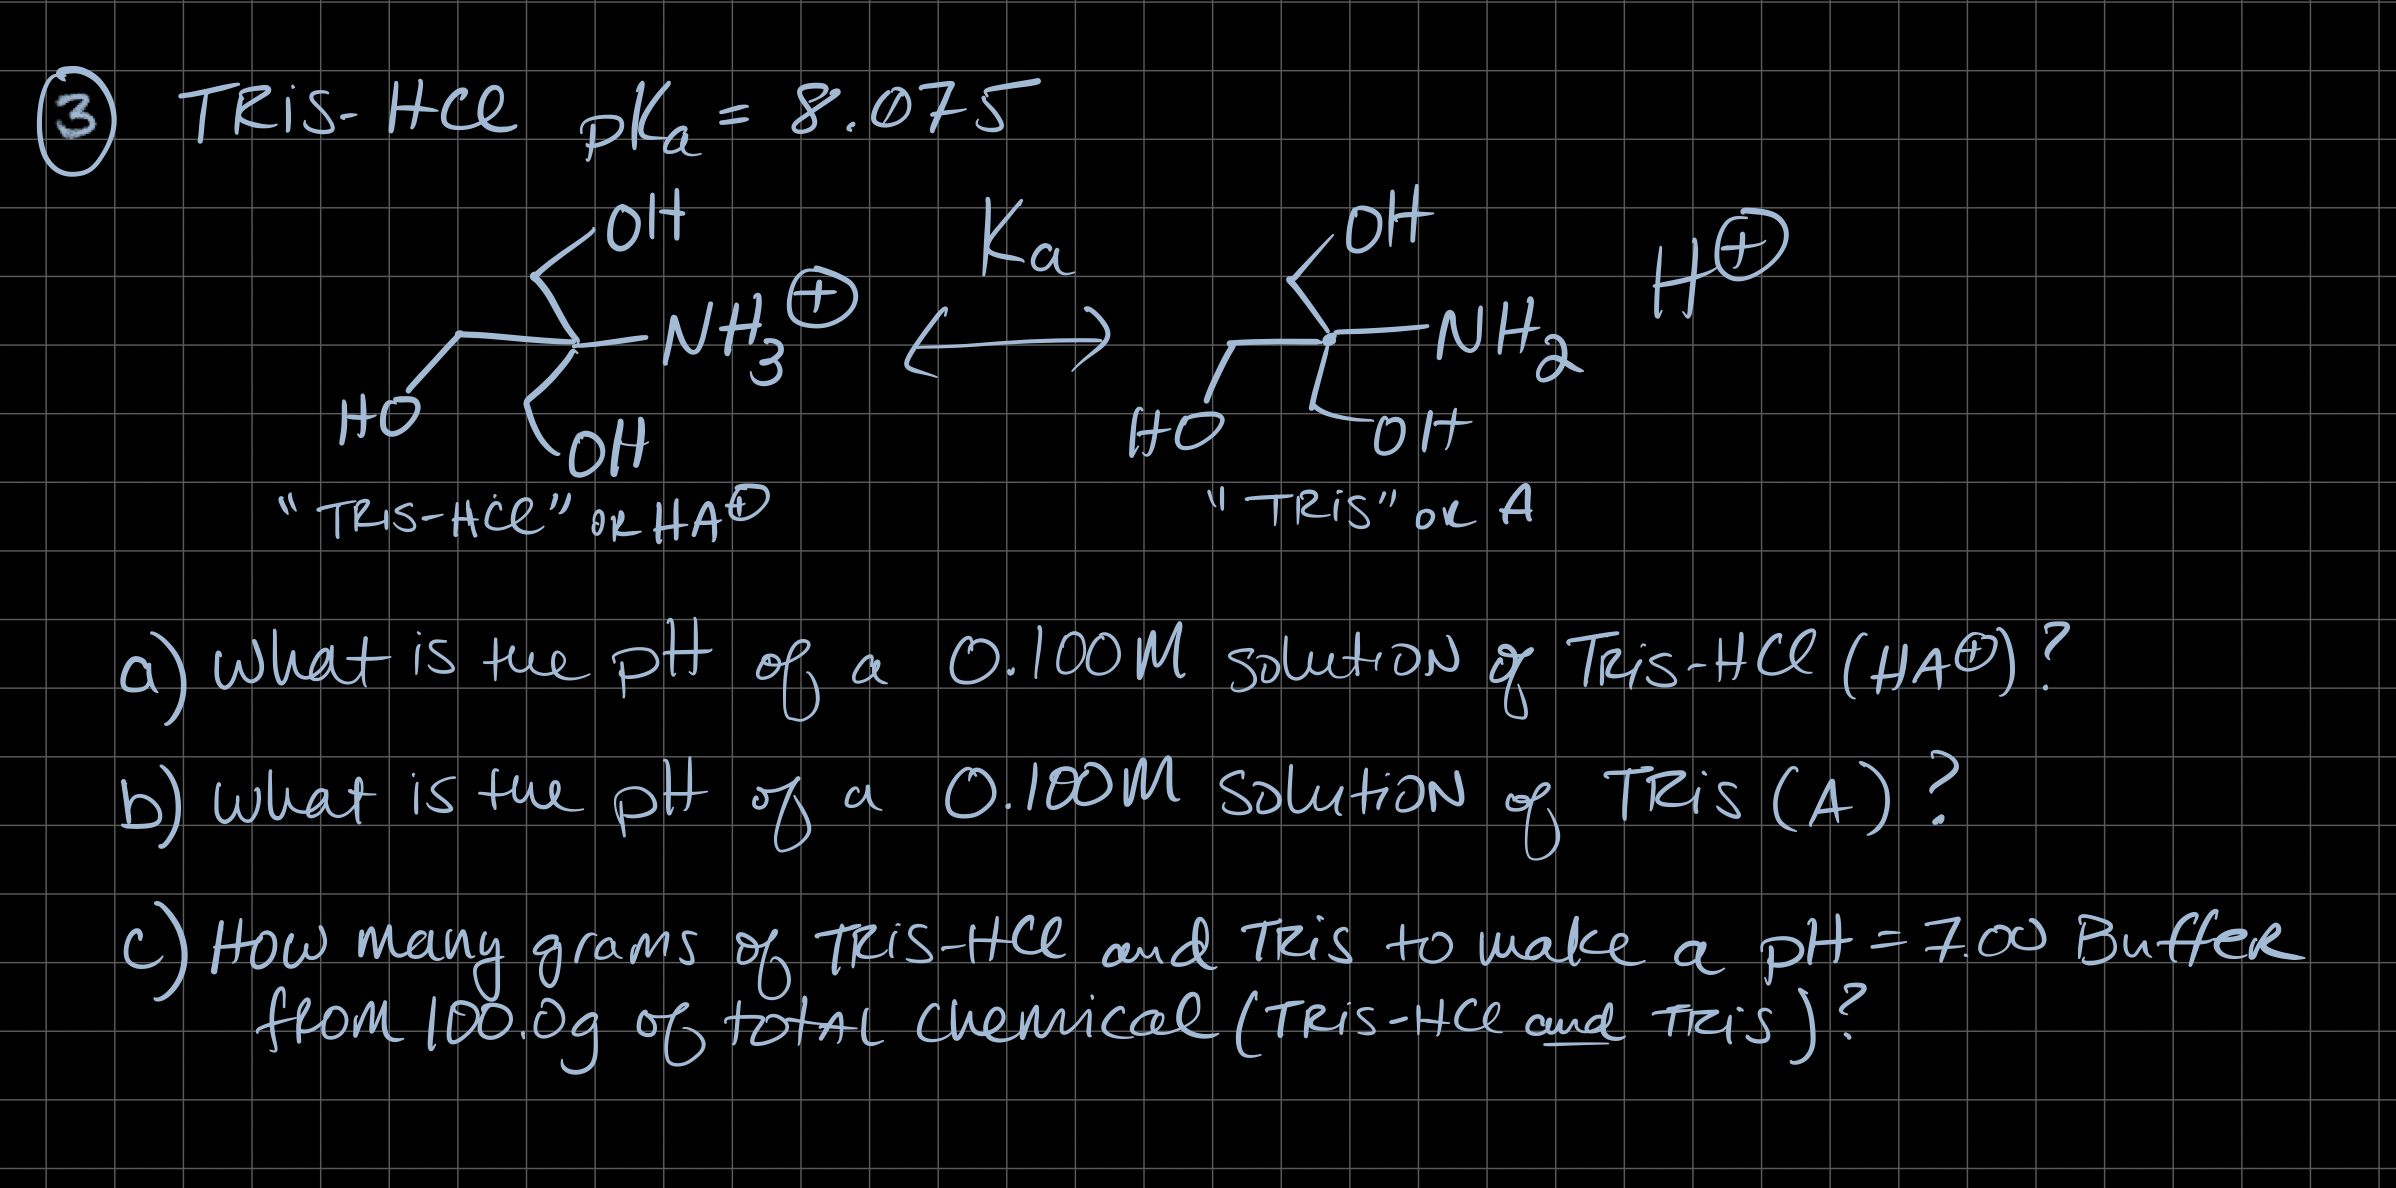 ③ TRiS-HCl pKa = 8.075
OH Ka OH H⊕
NH3⊕ ⟷ NH2
HO OH HO OH
"TRIS-HCl" OR HA⊕ "TRIS" OR A
a) What is the pH of a 0.100M solution of TRis-HCl (HA⊕)?
b) What is the pH of a 0.100M solution of TRis (A)?
c) How many grams of TRis-HCl and TRis to make a pH = 7.00 Buffer
from 100.0g of total chemical (TRis-HCl and TRis)?